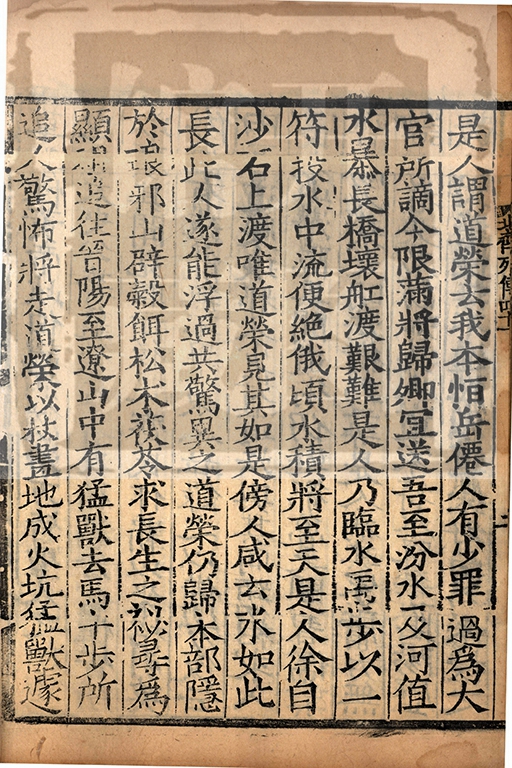 是人謂道榮云我本恒岳僊人有少罪過為大
官所謫今限滿將歸卿宜送吾至汾水及河值
水暴長橋壞舡渡艱難是人乃臨水禹步以一
符投水中流便絶俄頃水積將至天是人徐自
沙石上渡唯道榮見其如是傍人咸云水如此
長此人遂能浮過共驚異之道榮仍歸本部隱
於邪山辟穀餌松木茯苓求長生之祕尋為
顯追往晉陽至遼山中有猛獸去馬十步所
追人驚怖將走道榮以杖畫地成火坑猛獸遽